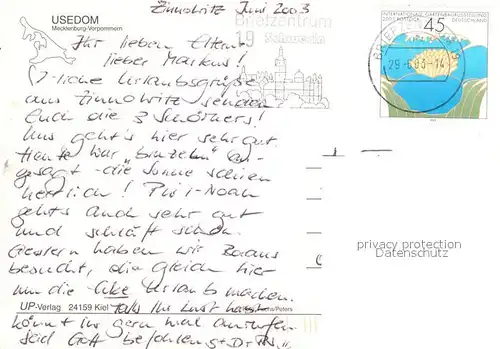 Zinnowitz Juni 2003
USEDOM
Mecklenburg-Vorpommern
Briefzentrum
19 Schwerin
INTERNATIONALE GARTENBAUAUSSTELLUNG
2003 ROSTOCK DEUTSCHLAND
45
BRIEFZENTRUM 19
29.6.03-14
Ihr lieben Eltern
lieber Markus!
♡-liche Urlaubsgrüße
aus Zinnowitz senden
Euch die 3 Schörners!
Uns geht's hier sehr gut.
Heute war "brutzeln" an-
gesagt - die Sonne schien
herrlich! Pius-Noah
geht's auch sehr gut
und schläft schön.
Gestern haben wir
besucht, die gleich hier
um die Ecke Urlaub machen.
Falls Ihr Lust habt
könnt Ihr gern mal anrufen
seid Gott befohlen
UP-Verlag 24159 Kiel
privacy protection
Datenschutz